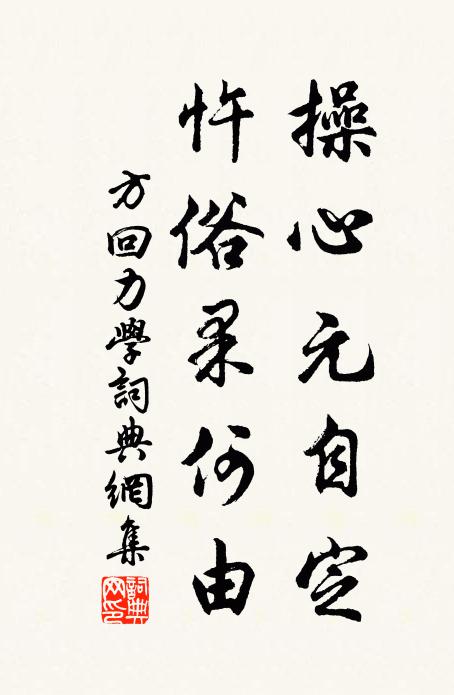 操心元自定
忤俗果何由
方回力學詞典網集
詞典網印